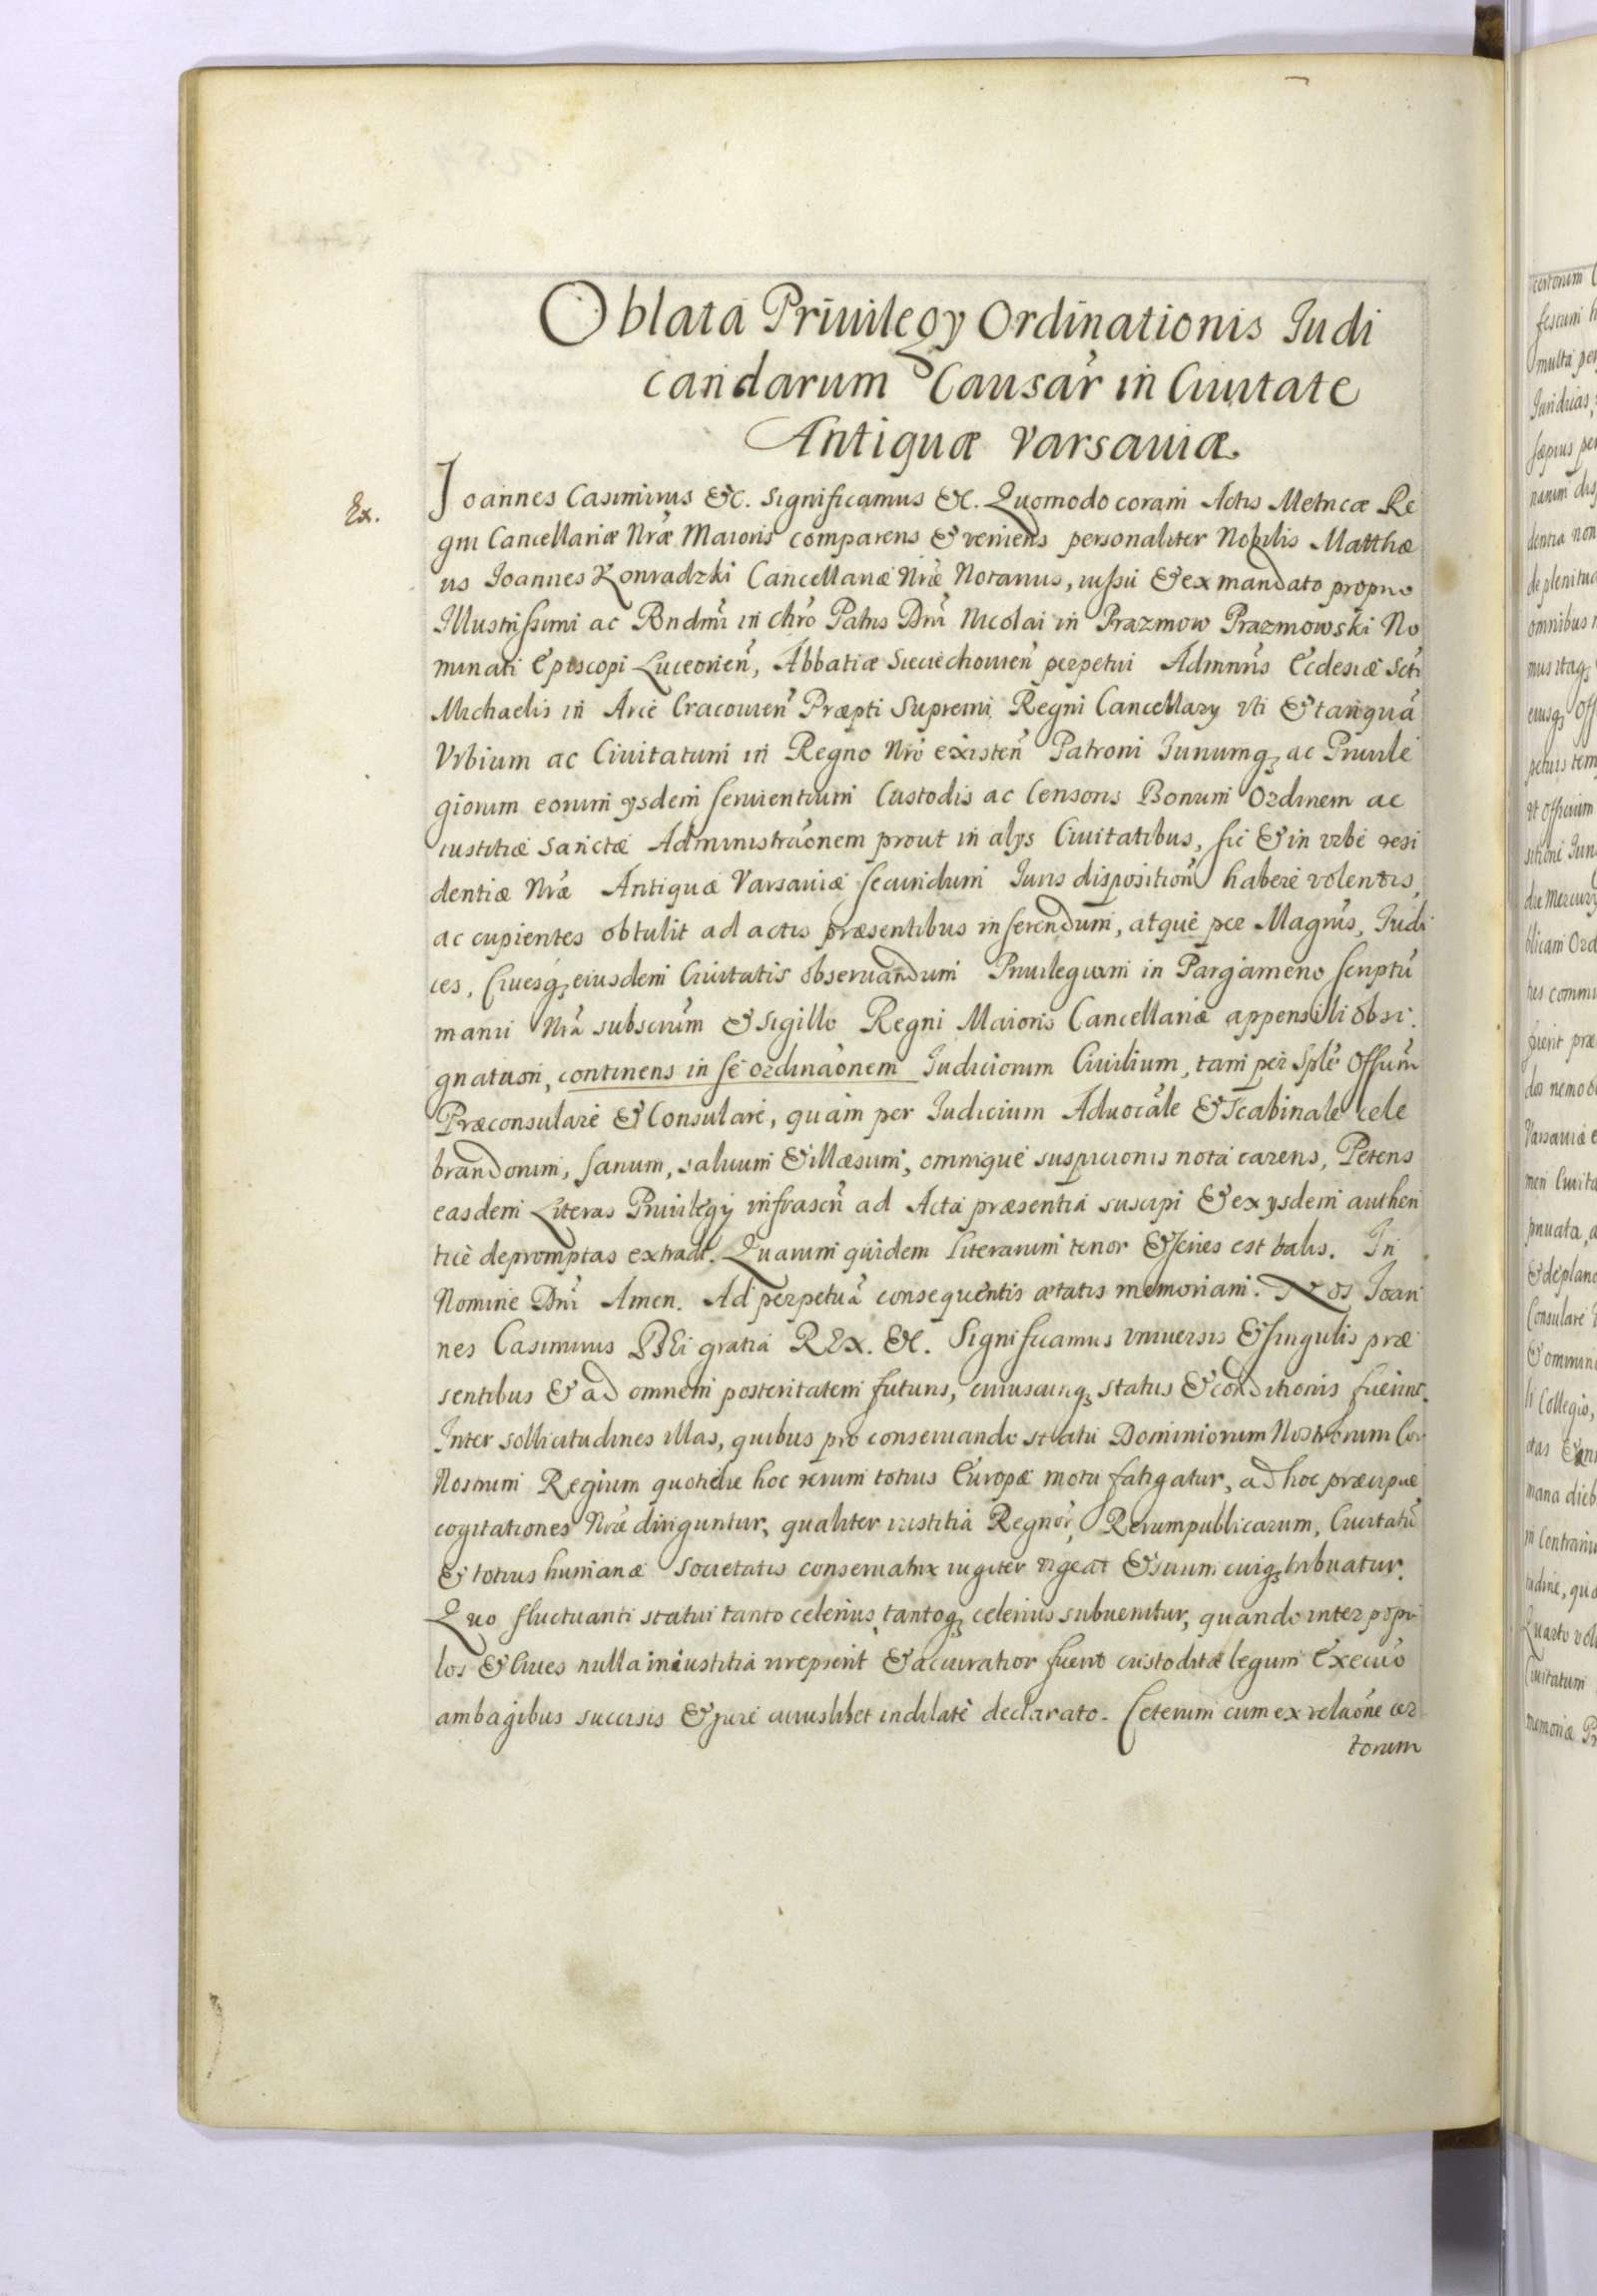 Oblata Priuilegy Ordinationis Judi
candarum Causar̃ in Ciuitate
Antiquæ Varsauiæ
Ex.
Joannes Casimirus &c. Significamus &c. Quomodo coram Actis Metricæ Re
gni Cancellariæ Nræ Maioris comparens & veniens personaliter Nobilis Matthæ
us Joannes Konradzki Cancellariæ Nræ Notarius, iussu & ex mandato proprio
Illustrissimi ac Rndmi in chrõ Patris Dni Nicolai in Prazmow Prazmowski No
minati Episcopi Luceorien̄, Abbatiæ Sieciechouien̄ perpetui Admnris Ecclesiæ Scti
Michaelis in Arce Cracouien̄ Præpti Supremi Regni Cancellary vti & tanquã
Vrbium ac Ciuitatum in Regno Nrõ existen̄ Patroni Juriumq; ac Priuile
giorum eorum ysdem seruientium Custodis ac Censoris Bonum Ordinem ac
iustitiæ Sanctæ Administrãonem prout in alys Ciuitatibus, sic & in vrbe resi
dentiæ Nræ Antiquæ Varsauiæ secundum Juris disposition̄ habere volentis,
ac cupientes obtulit ad actis præsentibus inserendum, atque per Magrũs, Judi
ces, Ciuesq; eiusdem Ciuitatis obseruandum Priuilegium in Pargameno scriptũ
manu Nrã subscrũm & Sigillo Regni Maioris Cancellariæ appensili obsi
gnatum, continens in se ordinãonem Judiciorum Ciuilium, tam per Splẽ Offium
Præconsulare & Consulare, quam per Judicium Aduocãle & Scabinale cele
brandorum, sanum, saluum & illæsum, omnique suspicionis nota carens, Petens
easdem Literas Priuilegy infrascr̃ ad Acta præsentia suscipi & ex ysdem authen
tice depromptas extradi. Quarum quidem literarum tenor & series est talis. In
Nomine Dni Amen. Ad perpetuã consequentis ætatis memoriam. Nos Joan
nes Casimirus DEi gratia REx. &c. Significamus vniuersis & singulis præ
sentibus & ad omnem posteritatem futuris, cuiuscunq; status & conditionis fuerint.
Inter sollicitudines illas, quibus pro conseruando statu Dominiorum Nostrorum Cor
Nostrum Regium quotidie hoc rerum totius Europæ motu fatigatur, ad hoc præcipuè
cogitationes Nræ diriguntur, qualiter iustitia Regnor̃, Rerumpublicarum, Ciuitatũ
& totius humanæ Societatis conseruatrix iugiter vigeat & suum cuiq; tribuatur.
Quo fluctuanti statui tanto celerius, tantoq; celerius subuenitur, quando inter popu
los & Ciues nulla iniustitia irrepserit & accuratior fuerit custoditæ legum Execũo
ambagibus succisis & jure cuiuslibet indilatè declarato. Ceterum cum ex relãone cer
torum